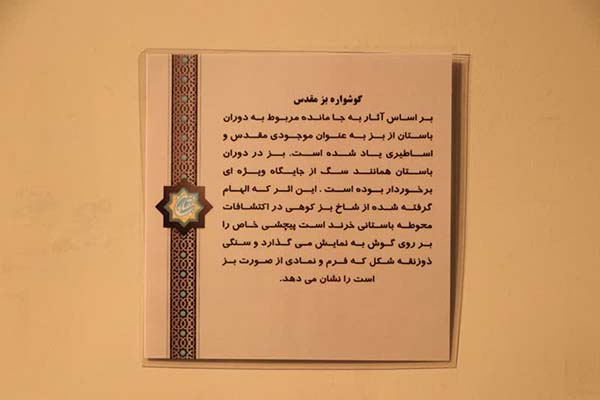 گوشواره بز مقدس
بر اساس آثار به جا مانده مربوط به دوران
باستان از بز به عنوان موجودی مقدس و
اساطیری یاد شده است. بز در دوران
باستان همانند سگ از جایگاه ویژه ای
برخوردار بوده است . این اثر که الهام
گرفته شده از شاخ بز کوهی در اکتشافات
محوطه باستانی خرند است پیچشی خاص را
بر روی گوش به نمایش می گذارد و سنگی
ذوزنقه شکل که فرم و نمادی از صورت بز
است را نشان می دهد.